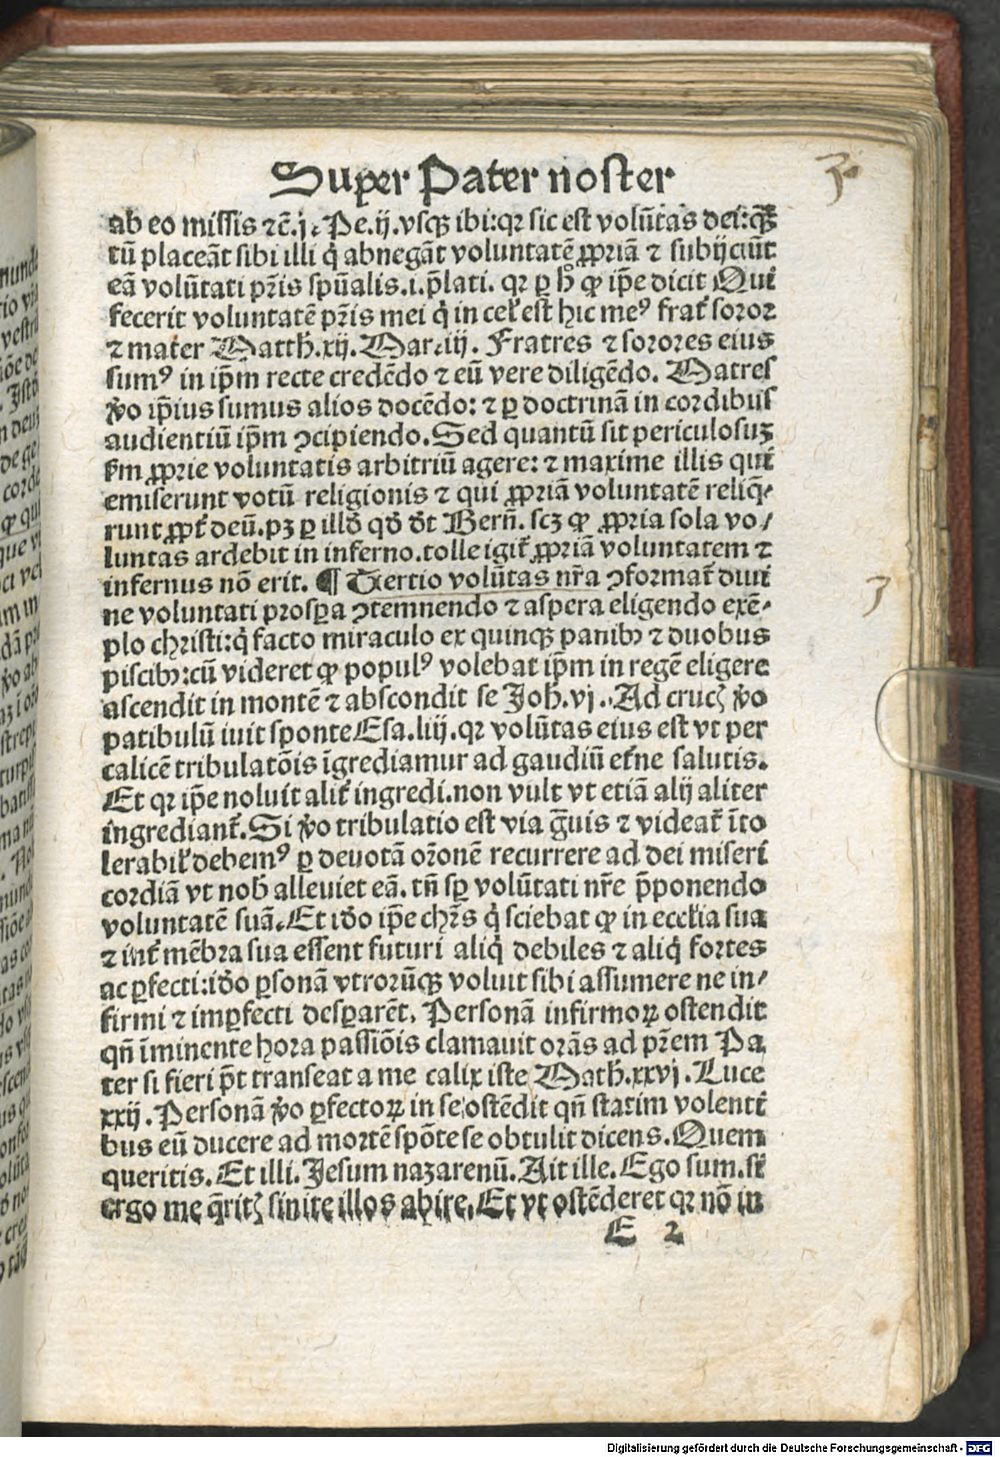 Super Pater noster
3
ab eo missis ⁊cͥ. j. Pe. ij. vsqꝫ ibi: qꝛ sic est volūtas dei: qͣꝫ
tū placeāt sibi illi q̇ abnegāt voluntatē ꝓpriā ⁊ subijciūt
eā volūtati pr̄is spūalis .i. p̄lati. qꝛ ꝑ hͦ ꝙ ip̄e dicit Qui
fecerit voluntatē pr̄is mei q̇ in celꝭ est hic meꝰ frat̄ soror
⁊ mater Matth. xij. Mar. iij. Fratres ⁊ sorores eius
sumꝰ in ip̄m recte credēdo ⁊ eū vere diligēdo. Matres
ꝟo ip̄ius sumus alios docēdo: ⁊ ꝑ doctrinā in cordibus
audientiū ip̄m ꝯcipiendo. Sed quantū sit periculosuꝫ
ẜm ꝓprie voluntatis arbitriū agere: ⁊ maxime illis qui
emiserunt votū religionis ⁊ qui ꝓpriā voluntatē reliq̄-
runt ꝓpt̄ deū. pꝫ ꝑ illd̄ qd̄ d̄t Berñ. scꝫ ꝙ ꝓpria sola vo/
luntas ardebit in inferno. tolle igit̄ ꝓpriā voluntatem ⁊
infernus nō erit. ¶ Tertio volūtas nr̄a ꝯformat̄ diui
3
ne voluntati prospa ꝯtemnendo ⁊ aspera eligendo exē-
plo christi: q̇ facto miraculo ex quinqꝫ panibꝫ ⁊ duobus
piscibꝫ: cū videret ꝙ populꝰ volebat ip̄m in regē eligere
ascendit in montē ⁊ abscondit se Joh̄. vj. Ad crucꝭ ꝟo
patibulū iuit sponte Esa. liij. qꝛ volūtas eius est vt per
calicē tribulatōis īgrediamur ad gaudiū et̄ne salutis.
Et qꝛ ip̄e noluit alit̄ ingredi. non vult vt etiā alij aliter
ingrediant̄. Si ꝟo tribulatio est via gͣuis ⁊ videat̄ īto
lerabilꝭ debemꝰ ꝑ deuotā or̄onē recurrere ad dei miseri
cordiā vt nob̄ alleuiet eā. tn̄ sꝑ volūtati nr̄e p̄ponendo
voluntatē suā. Et id̄o ip̄e chr̄s q̇ sciebat ꝙ in eccl̄ia sua
⁊ int̄ mēbra sua essent futuri aliq̇ debiles ⁊ aliq̇ fortes
ac ꝑfecti: id̄o ꝑsonā vtrorūqꝫ voluit sibi assumere ne in/
firmi ⁊ imꝑfecti desꝑarēt. Personā infirmoꝝ ostendit
qn̄ īminente hora passiōis clamauit orās ad pr̄em Pa
ter si fieri p̄t transeat a me calix iste Math. xxvj. Luce
xxij. Personā ꝟo ꝑfectoꝝ in se ostēdit qn̄ statim volenti
bus eū ducere ad mortē spōte se obtulit dicens. Quem
queritis. Et illi. Jesum nazarenū. Ait ille. Ego sum. si
ergo me q̄ritꝭ sinite illos abire. Et vt ostēderet qꝛ nō in
E 2
Digitalisierung gefördert durch die Deutsche Forschungsgemeinschaft - DFG